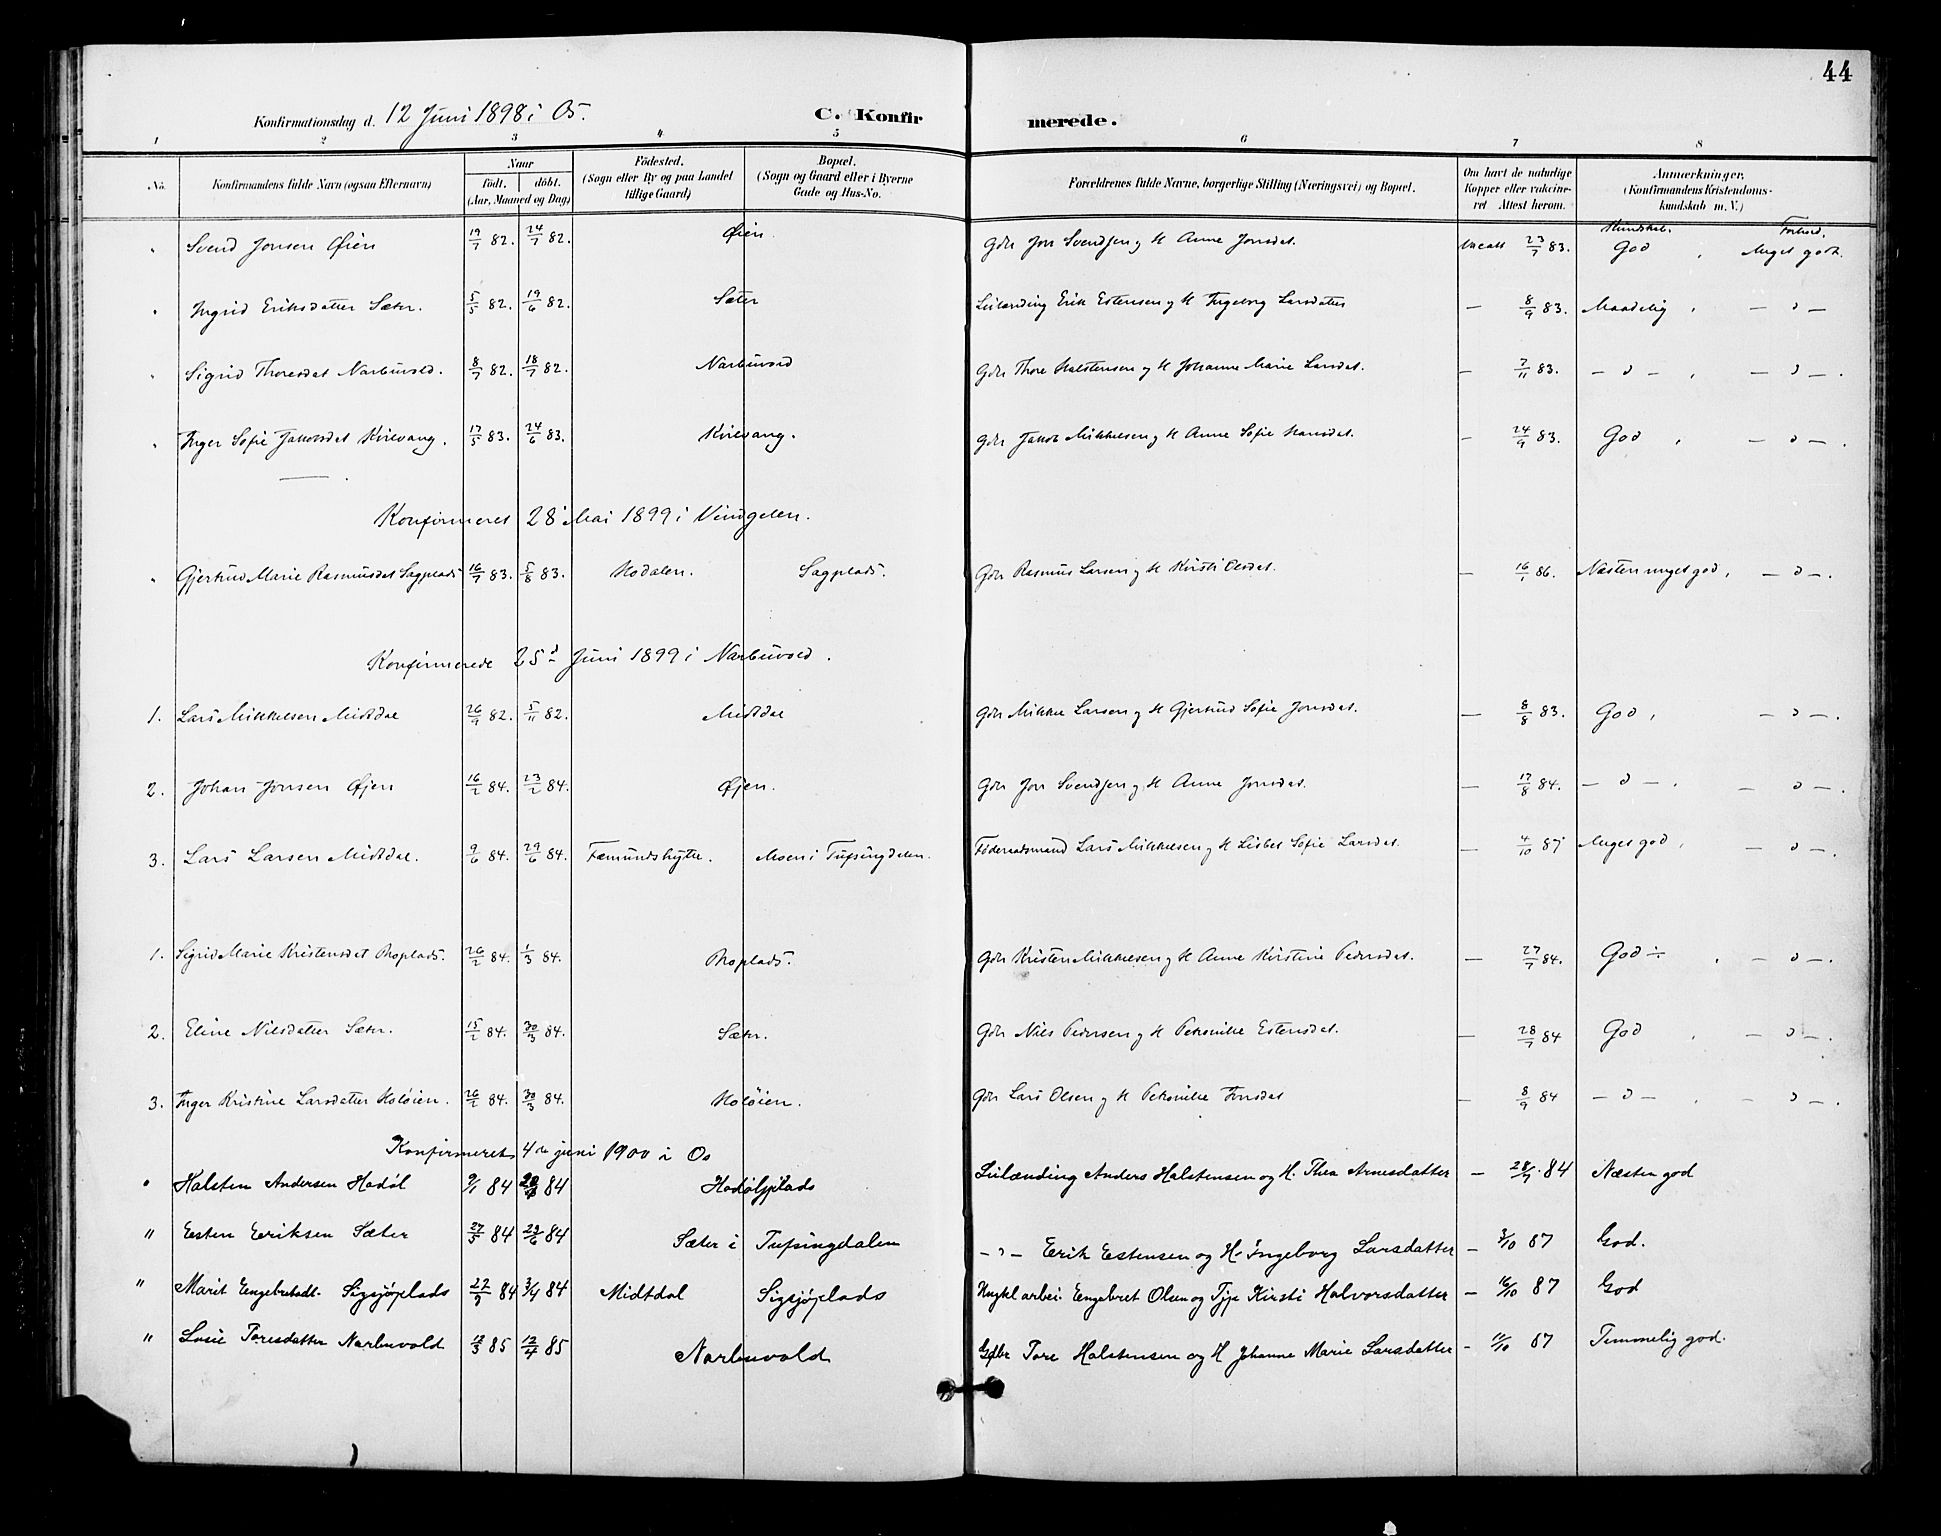 44
Konfirmationsdag d. 12 Juni 1898 i Os. C. Konfirmerede.
1 2 3 4 5 6 7 8
No. Konfirmandens fulde Navn (ogsaa Efternavn) Naar født. døbt. (Aar, Maaned og Dag) Fødested. (Sogn eller By og paa Landet tillige Gaard) Bopæl. (Sogn og Gaard eller i Byerne Gade og Hus-No. Forældrenes fulde Navne, borgerlige Stilling (Næringsvei) og Bopæl. Om havt de naturlige Kopper eller vakcineret Attest herom. Anmærkninger, (Konfirmandens Kristendomskundskab m. V.)
Kundskab. Forhold.
" Svend Jonsen Øien 19/7 82. 24/7 82. Øien. Gbr Jon Svendsen og H Anne Jonsdat. Vacatt 23/7 83. God , Meget godt.
" Ingrid Eriksdatter Sæter. 5/5 82. 19/6 82. Sæter Leilænding Erik Estensen og H Ingeborg Larsdatter — 8/9 83. Maadelig , — " —
" Sigrid Thoresdat Narbuvold. 8/7 82. 18/7 82. Narbuvold Gbr Thore Halstensen og H Johanne Marie Larsdat. — 7/11 83. — " — , — " — .
" Inger Sofie Jakobsdat Kvilvang. 17/5 83. 24/6 83. Kvilvang. Gbr Jakob Mikkelsen og H Anne Sofie Hansdat. — 24/9 83. God , — " — .
Konfirmeret 28 Mai 1899 i Vingelen.
" Gjertrud Marie Rasmusdat Sagplads 16/7 83. 5/8 83. Hodalen. Sagplads. Gbr Rasmus Larsen og H Kirsti Olsdat. — 16/1 86. Næsten meget god, — " — .
Konfirmerede 25d Juni 1899 i Narbuvold.
1. Lars Mikkelsen Midtdal 26/9 82. 5/11 82. Midtdal Gbr Mikkel Larsen og H Gjertrud Sofie Jonsdat. — 8/8 83. God, — " — .
2. Johan Jonsen Øjen 16/2 84. 23/2 84. Øjen. Gbr Jon Svendsen og H Anne Jonsdat. — 17/8 84. — " — . — " — .
3. Lars Larsen Midtdal. 9/6 84. 29/6 84. Fæmundshytte. Moen i Tufsingdalen. Føderaadsmand Lars Mikkelsen og H Lisbet Sofie Larsdat. — 4/10 87 Meget god, — " — .
1. Sigrid Marie Kristensdat Moplads. 26/2 84. 1/3 84. Moplads. Gbr Kristen Mikkelsen og H Anne Kirstine Pedersdat. — 27/7 84. God ÷ . — " — .
2. Eline Nilsdatter Sæter. 15/2 84. 30/3 84. Sæter. Gbr Nils Pedersen og H Petronille Estensdat. — 28/7 84 God , — " — .
3. Inger Kristine Larsdatter Holøien. 26/2 84. 30/3 84. Holøien. Gbr Lars Olsen og H Petronille Jonsdat — 8/9 84 — " — , — " — .
Konfirmeret 4de juni 1900 i Os
" Halsten Andersen Hodøl 9/1 84 84 Hodølplads Leilænding Anders Halstensen og H. Thea Arnesdatter — 28/7 84 Næsten god
" Esten Eriksen Sæter 27/5 84 29/6 84 Sæter i Tufsingdalen — " — Erik Estensen og H. Ingeborg Larsdatter — 3/10 87 God.
" Marit Engebretsdt. Sigsjøplads 27/3 84 3/4 84 Midtdal Sigsjøplads Ungkl arbei Engebret Olsen og Tjp Kirsti Halvorsdatter — 16/10 87 God
" Losie Toresdatter Narbuvold 12/3 85 12/4 85 Narbuvold Gdbr Tore Halstensen og H Johanne Marie Larsdatter - 11/10 87 Temmelig god.